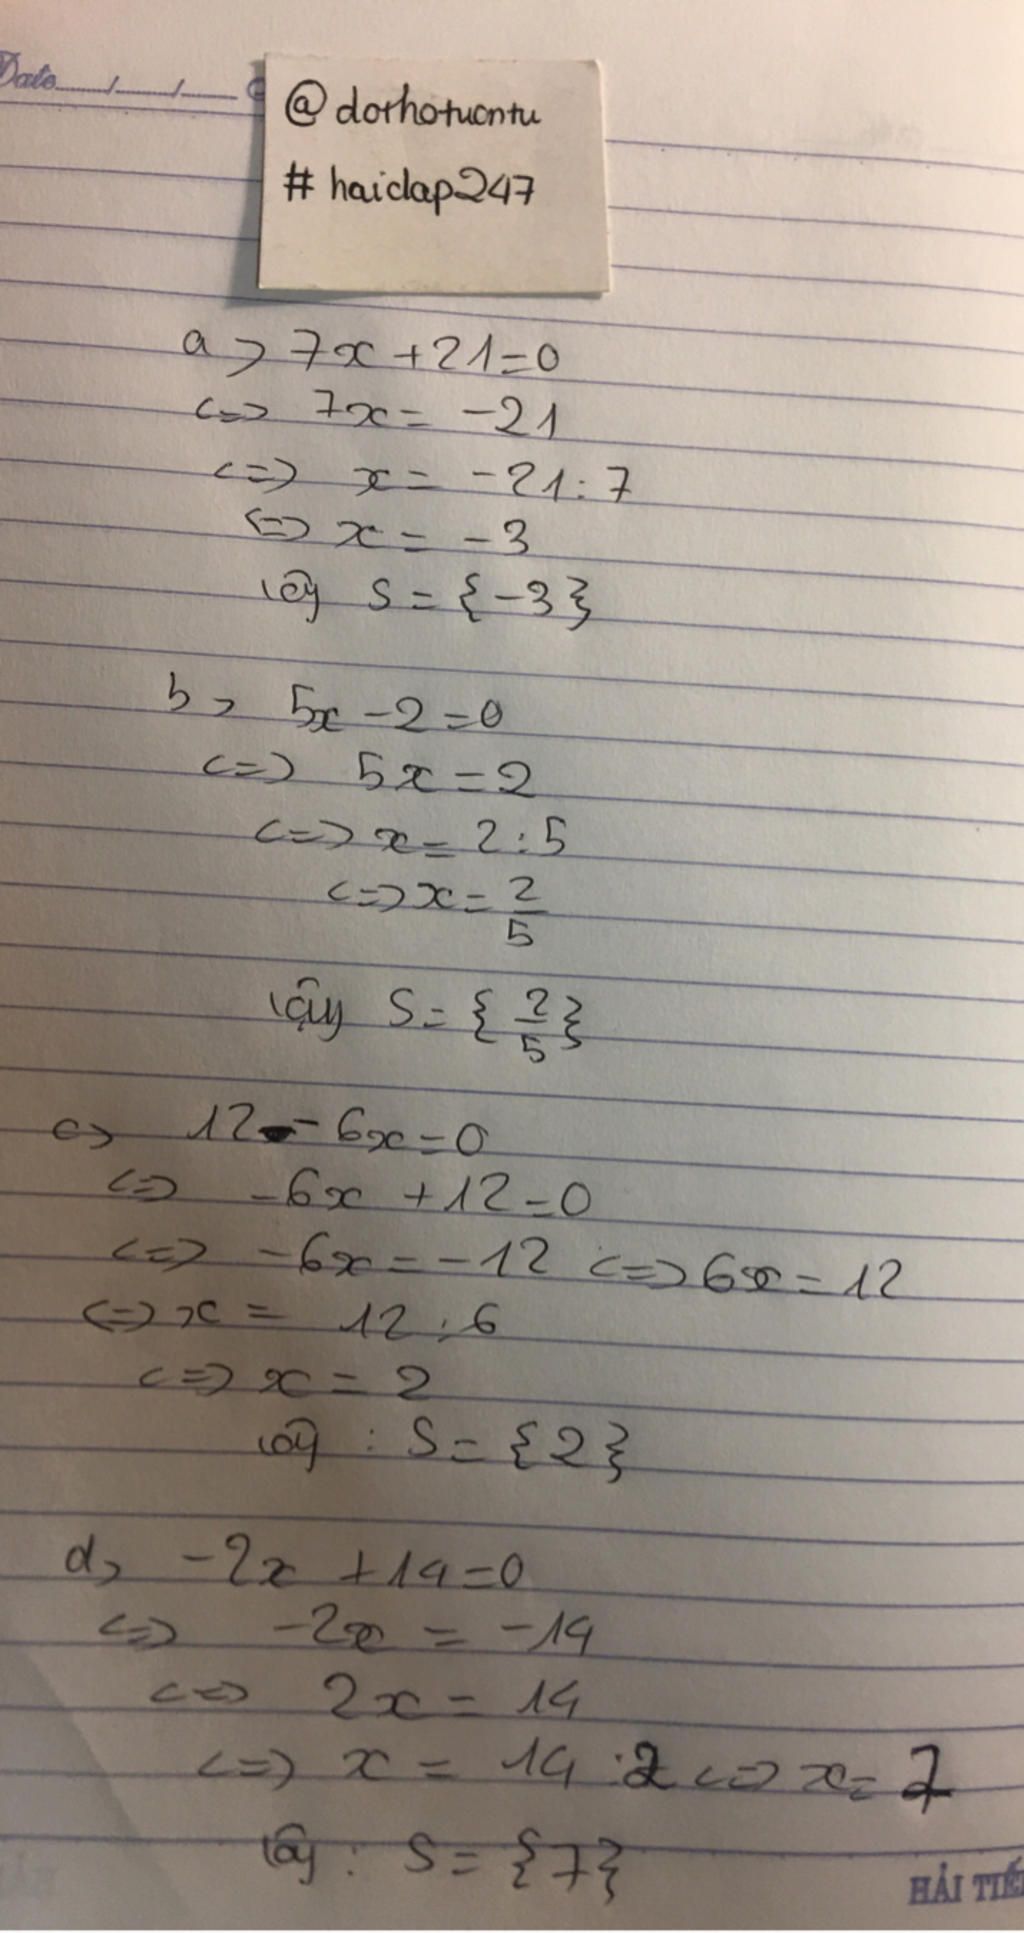 Date
@dorhotuontu
#haiclap247
a> 7x+21=0
<=> 7x = -21
<=> x = -21:7
<=> x = -3
Vậy S = {-3}
b> 5x-2=0
<=> 5x=2
<=> x= 2:5
<=> x= 2/5
Vậy S= {2/5}
c> 12 - 6x=0
<=> -6x +12=0
<=> -6x = -12 <=> 6x = 12
<=> x = 12:6
<=> x = 2
Vậy : S = {2}
d> -2x +14=0
<=> -2x = -14
<=> 2x = 14
<=> x = 14:2 <=> x= 7
Vậy : S = {7}
HẢI TIẾ